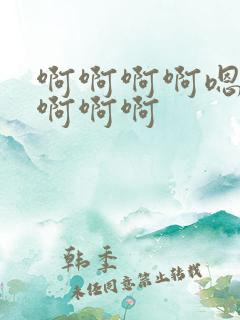 啊啊啊啊嗯
啊啊啊
韩季
未经同意禁止转载